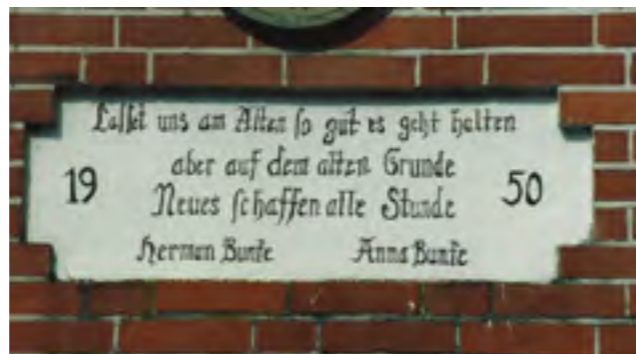 Lasset uns am Alten so gut es geht halten
aber auf dem alten Grunde
Neues schaffen alle Stunde
19 50
Herman Bunte Anna Bunte